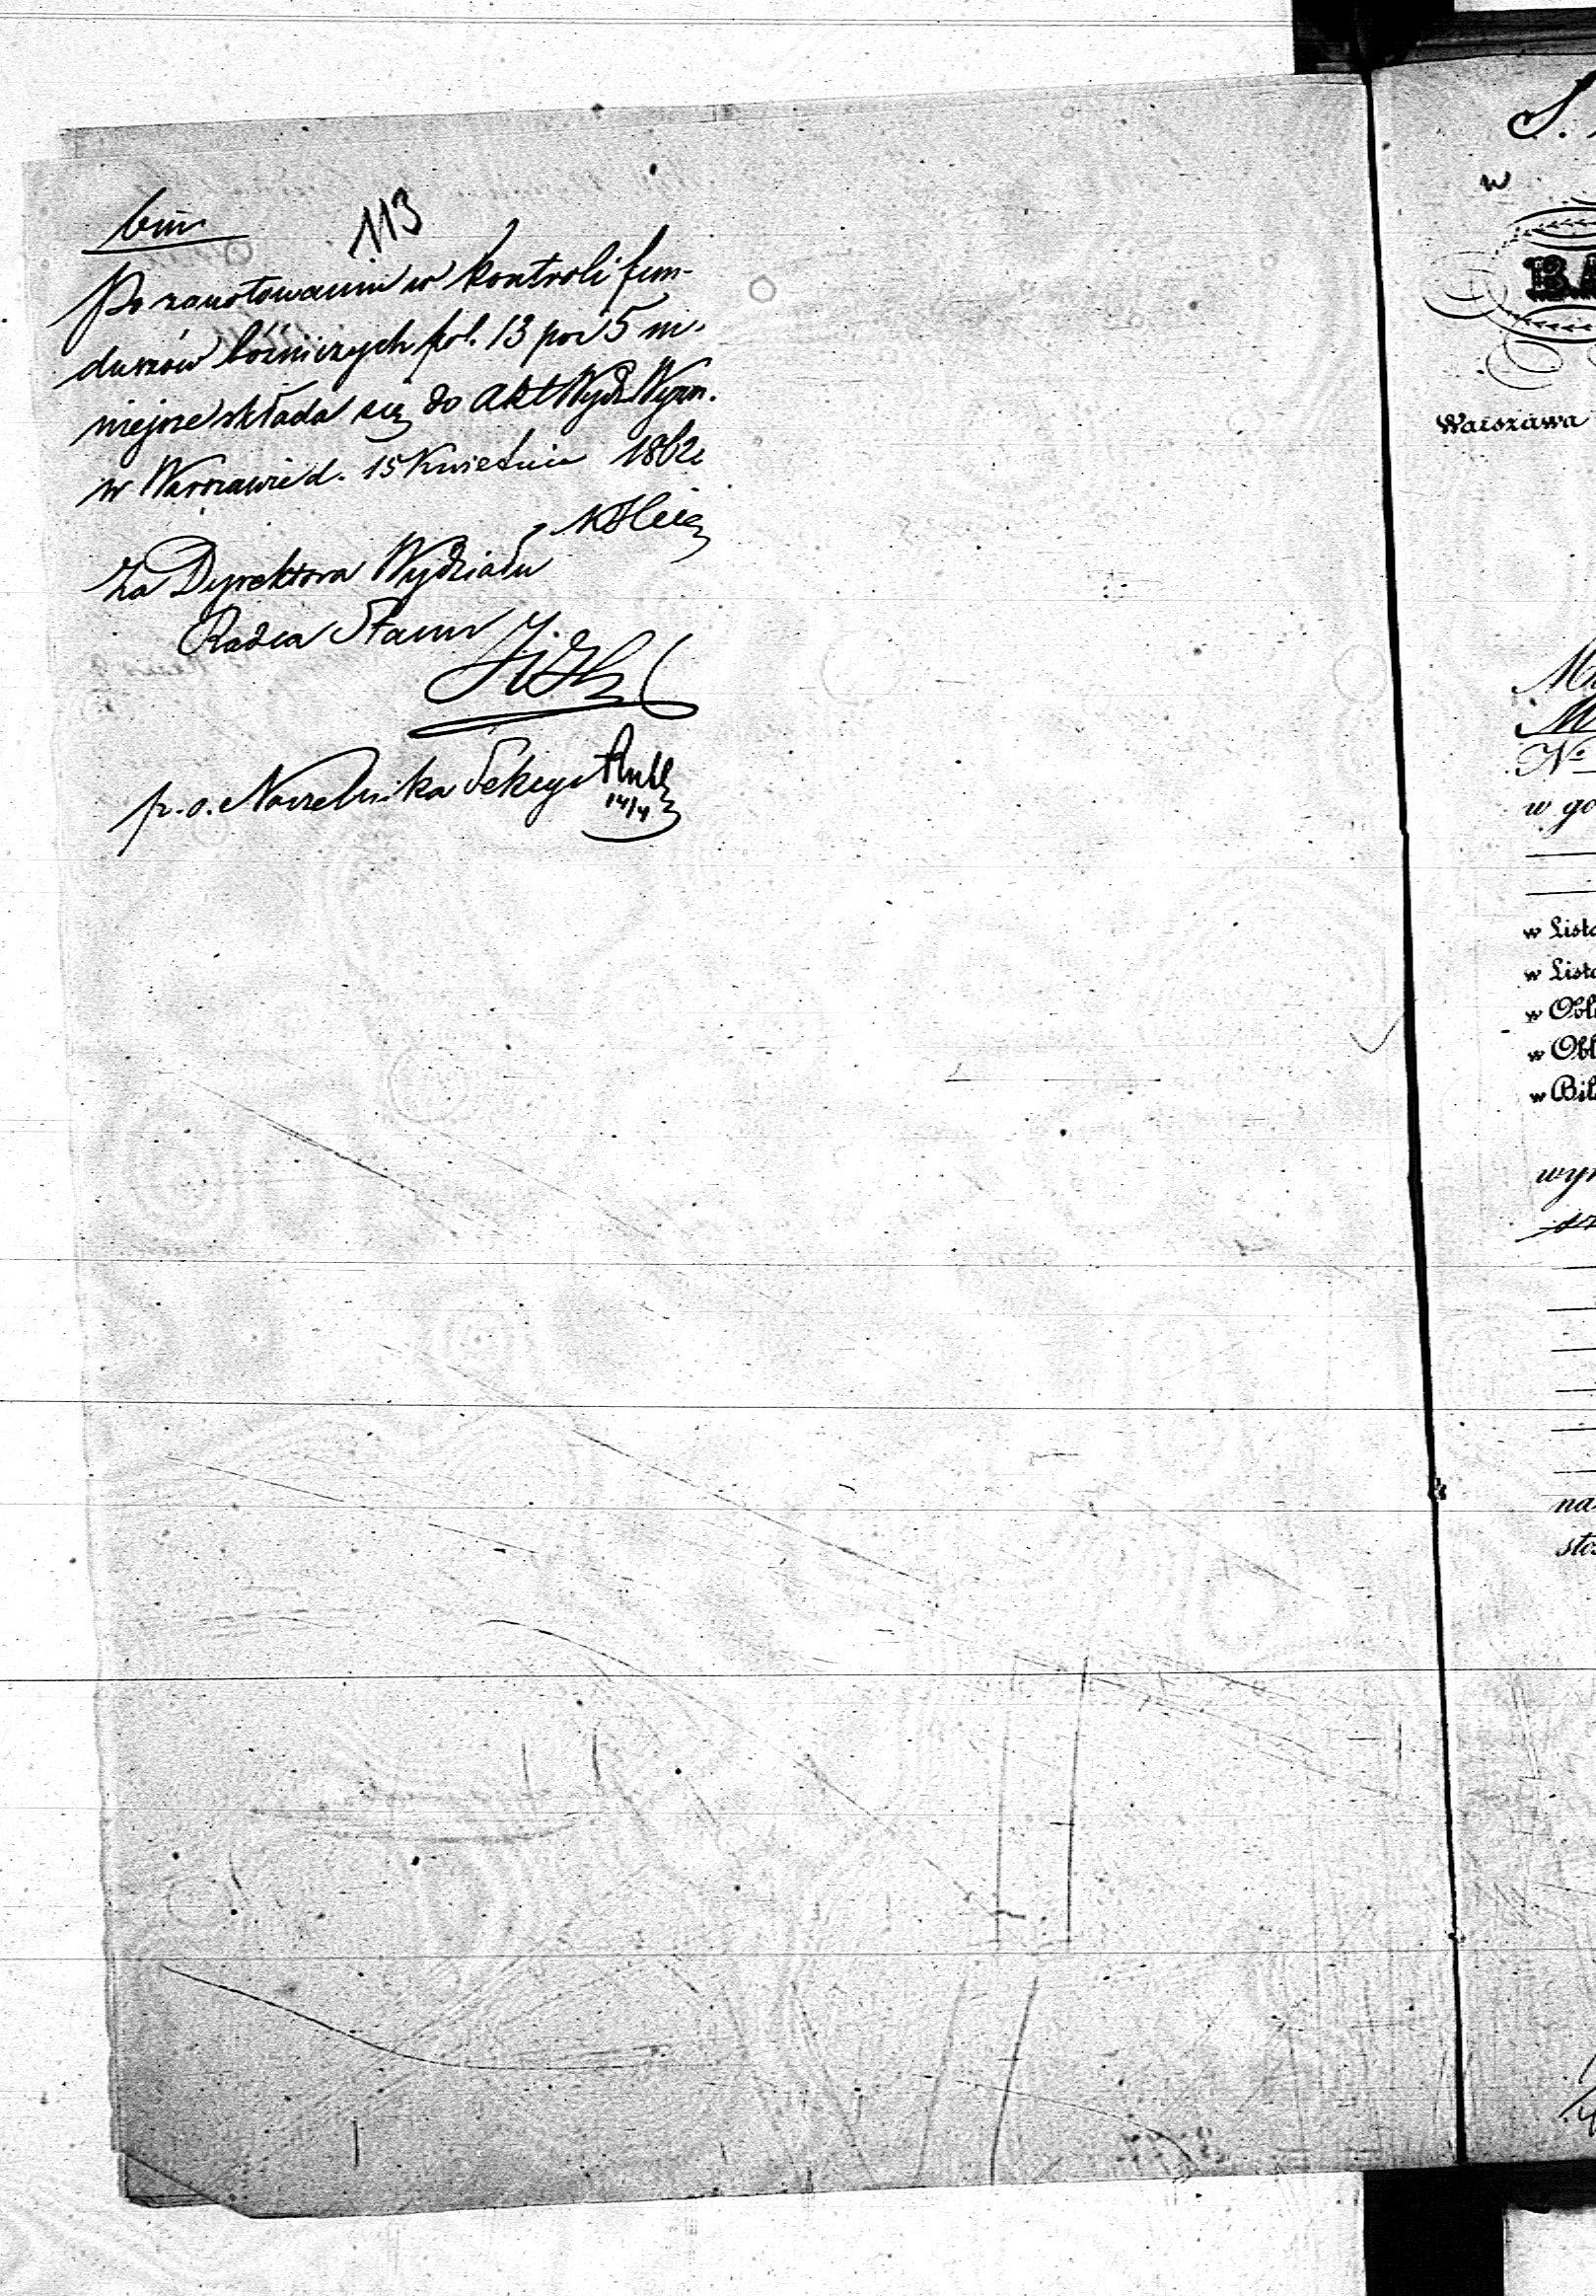 113
Po zanotowaniu w kontroli fun-
duszów bóźniczych fol. 13 poz 5 ni-
niejsze składa się do Akt Wydz. Wyzn.
w Warszawie d. 15 Kwietnia 1862
Za Dyrektora Wydziału
Radca Stanu
p.o. Naczelnika Sekcyi
14/4
S.
w
BA
Warszawa
M
M
No
w go
w Lista
w Lista
w Obl
w Obl
w Bil
wyn
na
sto